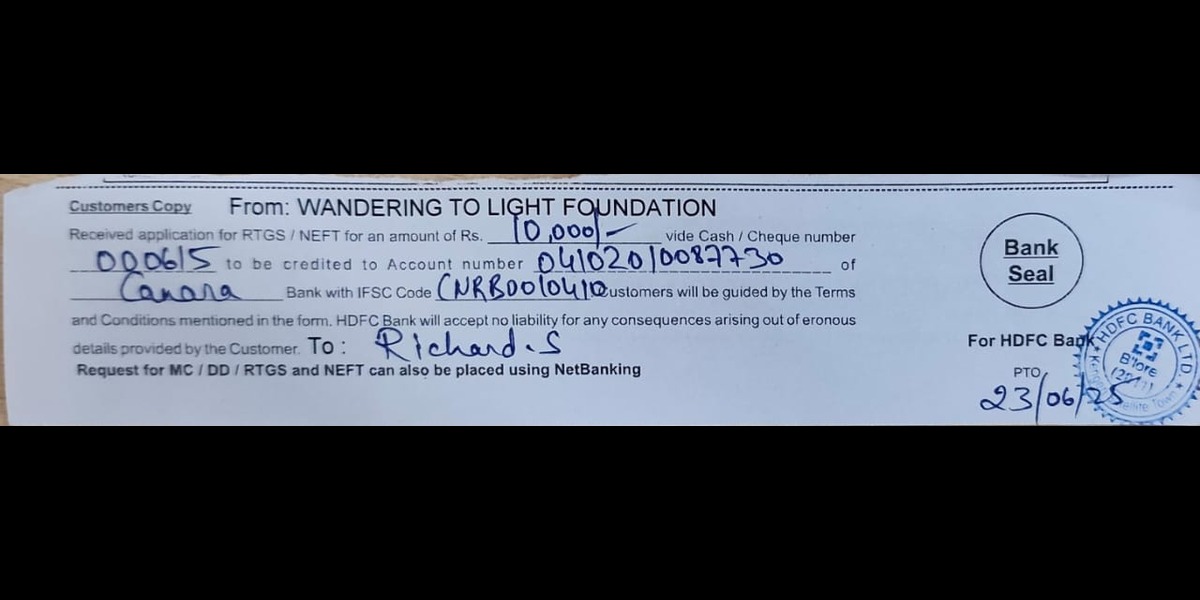 Customers Copy From: WANDERING TO LIGHT FOUNDATION
Received application for RTGS / NEFT for an amount of Rs. 10,000/- vide Cash / Cheque number
000615 to be credited to Account number 04102010087730 of
Canara Bank with IFSC Code CNRB0010410 Customers will be guided by the Terms
and Conditions mentioned in the form. HDFC Bank will accept no liability for any consequences arising out of eronous
details provided by the Customer. To : Richard.S
Request for MC / DD / RTGS and NEFT can also be placed using NetBanking
Bank
Seal
For HDFC Bank
PTO
23/06/25
HDFC BANK LTD.
B'lore
Town